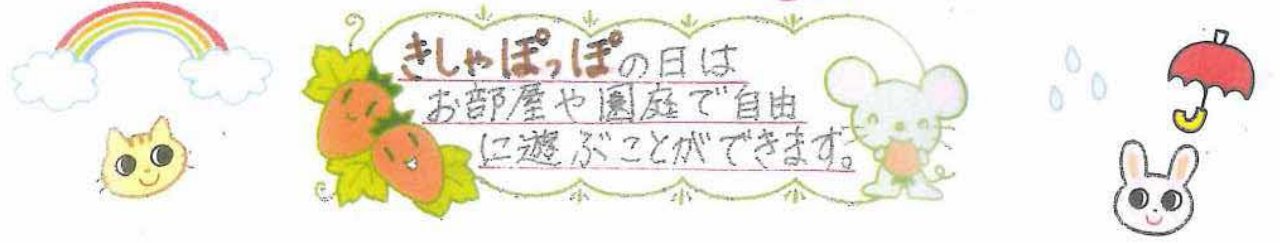 きしゃぽっぽの日は
お部屋や園庭で自由
に遊ぶことができます。